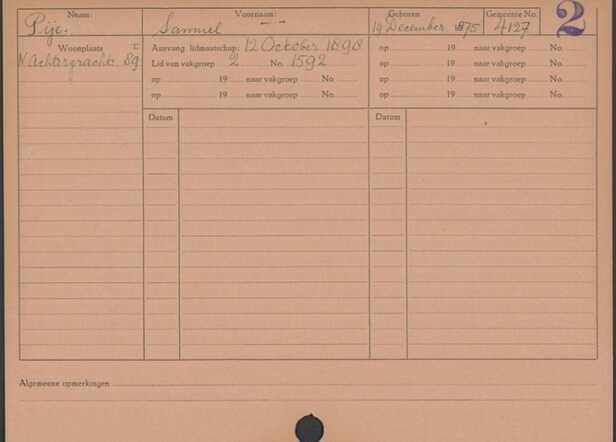 Naam: Voornaam: Geboren Gemeente No. 2
Pije. Samuel 19 December 1875 4127
Woonplaats Aanvang lidmaatschap: 12 October 1898 op 19 naar vakgroep No.
N Achtergracht 89 I Lid van vakgroep 2 No. 1592 op 19 naar vakgroep No.
op 19 naar vakgroep No. op 19 naar vakgroep No.
op 19 naar vakgroep No. op 19 naar vakgroep No.
Datum Datum
Algemeene opmerkingen